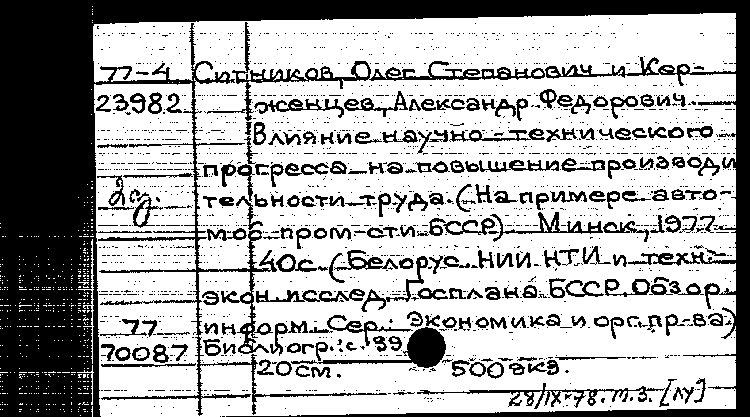 77-4 Ситников, Олег Степанович и Кер-
23982 женцев, Александр Федорович.
Влияние научно-технического
прогресса на повышение производи
2 эз. тельности труда. (На примере авто-
моб. пром-сти БССР) Минск, 1977.
40с. (Белорус. НИИ НТИ и техн.-
экон. исслед. Госплана БССР. Обзор.
77 информ. Сер.: Экономика и орг. пр-ва)
70087 Библиогр.: с. 39
20см. 500экз.
28/IX-78. т.3. [ЛУ]